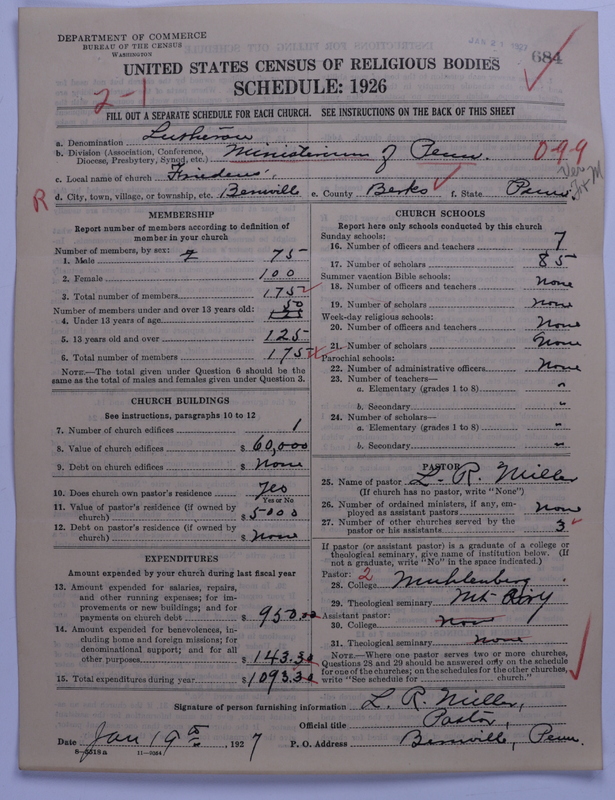 DEPARTMENT OF COMMERCE
BUREAU OF THE CENSUS
WASHINGTON
JAN 21 1927
684
UNITED STATES CENSUS OF RELIGIOUS BODIES
SCHEDULE: 1926
2-1
FILL OUT A SEPARATE SCHEDULE FOR EACH CHURCH. SEE INSTRUCTIONS ON THE BACK OF THIS SHEET
a. Denomination Lutheran
b. Division (Association, Conference, Diocese, Presbytery, Synod, etc.) Ministerium of Penn. 099
c. Local name of church Friedens,
R d. City, town, village, or township, etc. Bernville e. County Berks f. State Penn.
MEMBERSHIP
Report number of members according to definition of
member in your church
Number of members, by sex:
1. Male 75
2. Female 100
3. Total number of members 175
Number of members under and over 13 years old:
4. Under 13 years of age 50
5. 13 years old and over 125
6. Total number of members 175
NOTE.—The total given under Question 6 should be
same as the total of males and females given under Question 3.
CHURCH BUILDINGS
See instructions, paragraphs 10 to 12
7. Number of church edifices 1
8. Value of church edifices $ 60,000
9. Debt on church edifices $ None
10. Does church own pastor's residence Yes
Yes or No
11. Value of pastor's residence (if owned by
church) $ 5000
12. Debt on pastor's residence (if owned by
church) $ None
EXPENDITURES
Amount expended by your church during last fiscal year
13. Amount expended for salaries, repairs,
and other running expenses; for im-
provements or new buildings; and for
payments on church debt $ 950.00
14. Amount expended for benevolences, in-
cluding home and foreign missions; for
denominational support; and for all
other purposes $ 143.30
15. Total expenditures during year $ 1093.30
CHURCH SCHOOLS
Report here only schools conducted by this church
Sunday schools:
16. Number of officers and teachers 7
17. Number of scholars 85
Summer vacation Bible schools:
18. Number of officers and teachers None
19. Number of scholars None
Week-day religious schools:
20. Number of officers and teachers None
21. Number of scholars None
Parochial schools:
22. Number of administrative officers None
23. Number of teachers—
a. Elementary (grades 1 to 8) "
b. Secondary "
24. Number of scholars—
a. Elementary (grades 1 to 8) "
b. Secondary "
PASTOR
25. Name of pastor L. R. Miller
(If church has no pastor, write "None")
26. Number of ordained ministers, if any, em-
ployed as assistant pastors None
27. Number of other churches served by the
pastor or his assistants 3
If pastor (or assistant pastor) is a graduate of a college or
theological seminary, give name of institution below. (If
not a graduate, write "No" in the space indicated.)
Pastor: 2
28. College Muhlenberg
29. Theological seminary Mt. Airy
Assistant pastor:
30. College None
31. Theological seminary None
NOTE.—Where one pastor serves two or more churches,
Questions 28 and 29 should be answered only on the schedule
for one of the churches; on the schedules for the other churches,
write "See schedule for church."
Signature of person furnishing information L. R. Miller,
Official title Pastor,
Date Jan 19th, 1927 P. O. Address Bernville, Penn.
8-5318a 11-9084